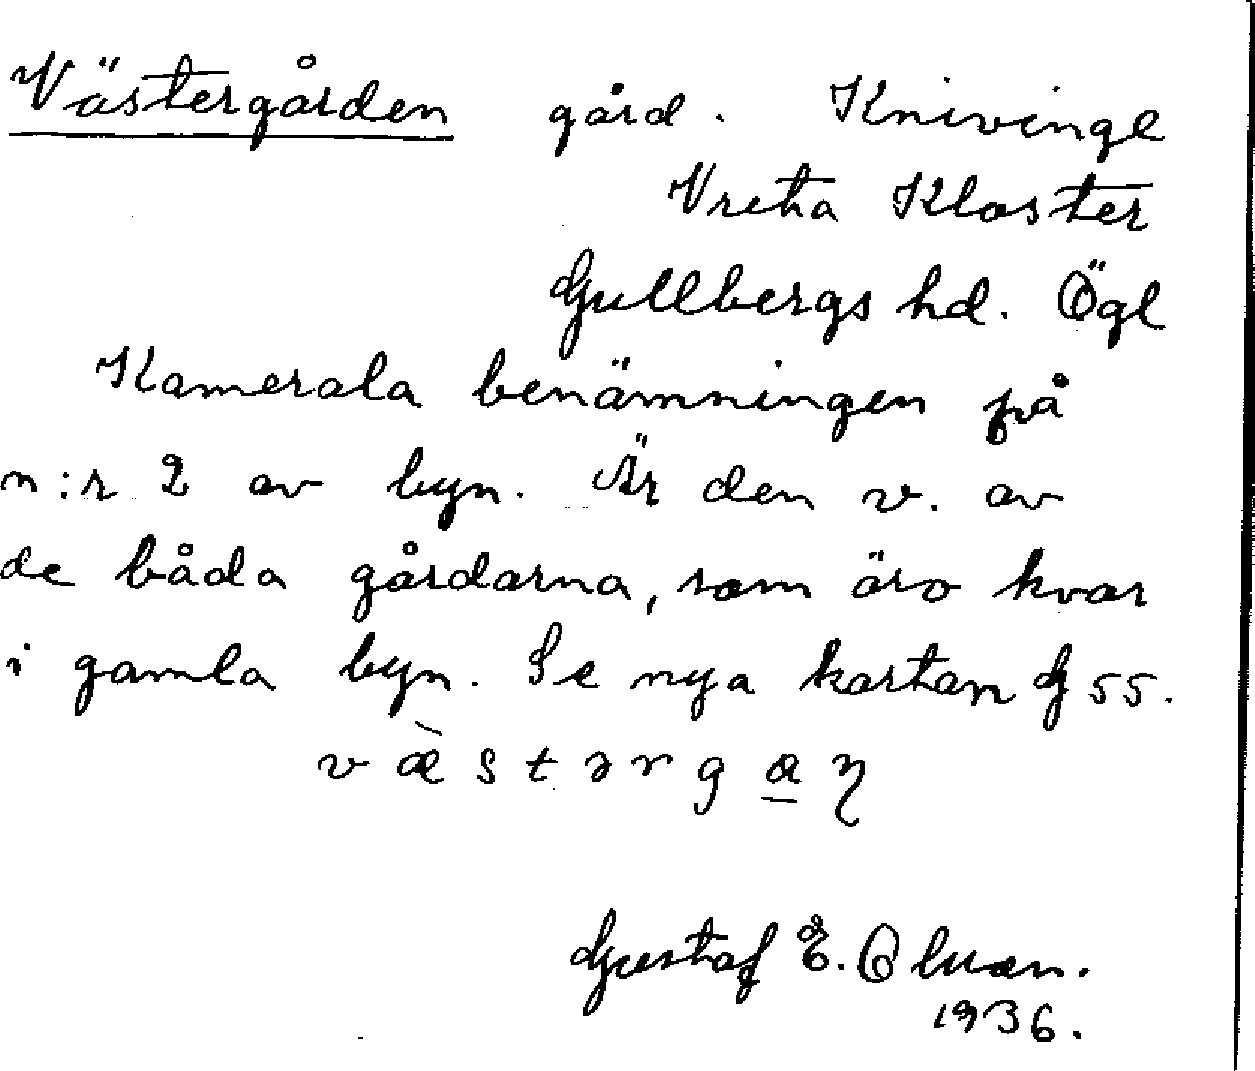 Västergården gård. Knivinge
Vreta Kloster
Gullbergs hd. Ögl
Kamerala benämningen på
n:r 2 av byn. Är den v. av
de båda gårdarna, som äro kvar
i gamla byn. Se nya kartan G 55.
væ̀stərga̲ɳ
Gustaf E. Olsson.
1936.